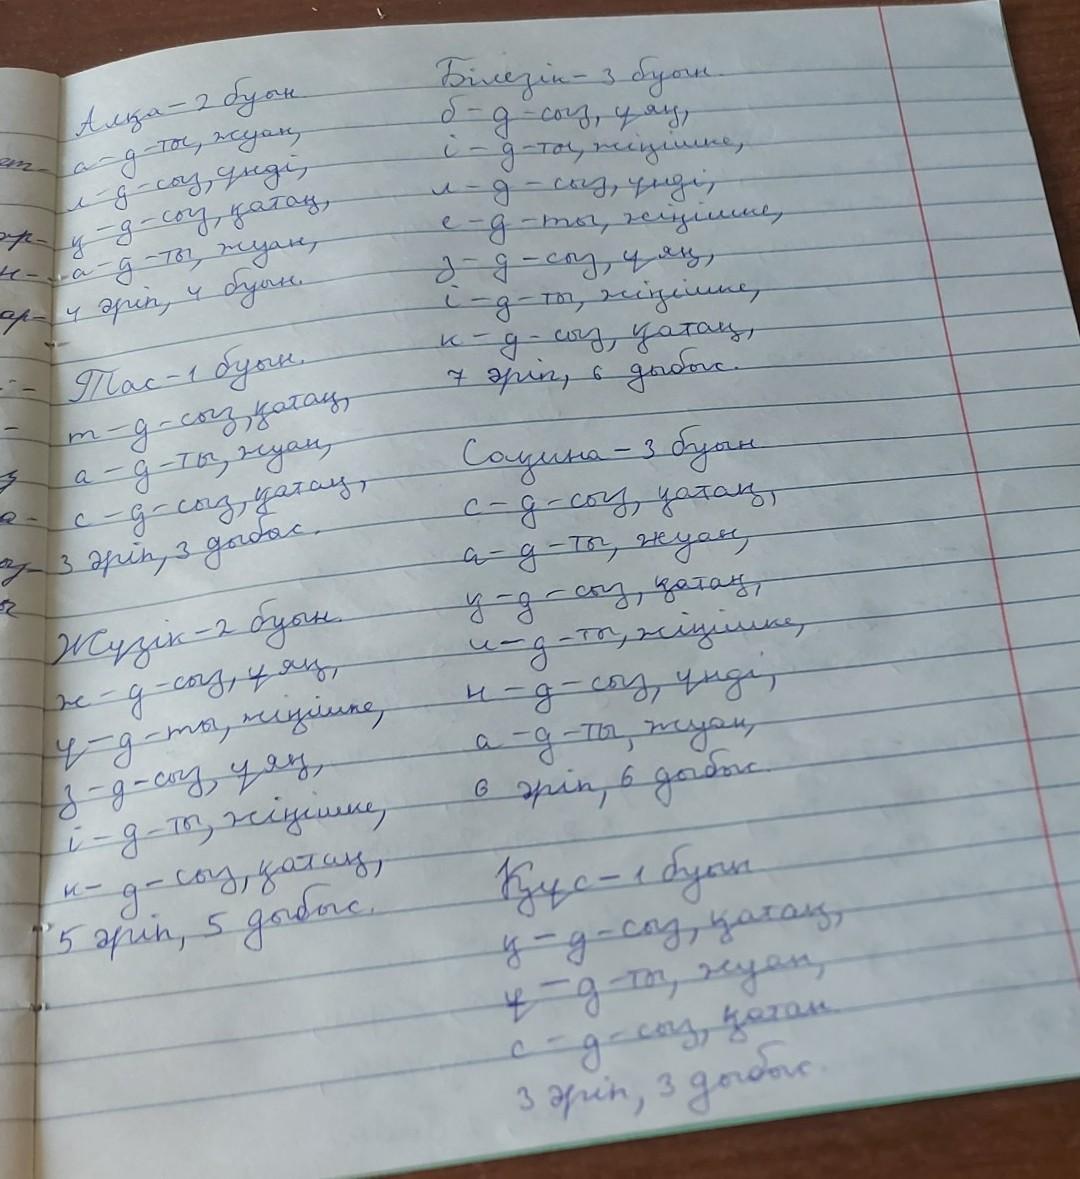 Алқа – 2 буын
а – д – ты, жуан,
л – д – сыз, үнді,
қ – д – сыз, қатаң,
а – д – ты, жуан,
4 әріп, 4 буын.
Тас – 1 буын.
т – д – сыз, қатаң,
а – д – ты, жуан,
с – д – сыз, қатаң,
3 әріп, 3 дыбыс.
Жүзік – 2 буын.
ж – д – сыз, ұяң,
ү – д – ты, жіңішке,
з – д – сыз, ұяң,
і – д – ты, жіңішке,
к – д – сыз, қатаң,
5 әріп, 5 дыбыс.
Білезік – 3 буын.
б – д – сыз, ұяң,
і – д – ты, жіңішке,
л – д – сыз, үнді,
е – д – ты, жіңішке,
з – д – сыз, ұяң,
і – д – ты, жіңішке,
к – д – сыз, қатаң,
7 әріп, 6 дыбыс.
Сақина – 3 буын
с – д – сыз, қатаң,
а – д – ты, жуан,
қ – д – сыз, қатаң,
и – д – ты, жіңішке,
н – д – сыз, үнді,
а – д – ты, жуан,
6 әріп, 6 дыбыс.
Құс – 1 буын
қ – д – сыз, қатаң,
ұ – д – ты, жуан,
с – д – сыз, қатаң
3 әріп, 3 дыбыс.